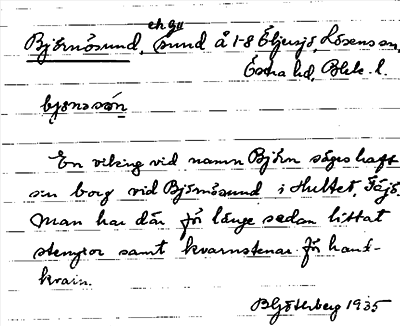 Björnösund, sund å 1-8 Eljusjö, Lösens sn,
Östra hd, Blek. l.
bjønəsøn
En viking vid namn Björn säges haft
sin borg vid Björnösund i Hultet, Fäjö.
Man har där för länge sedan hittat
stenyxor samt kvarnstenar för hand-
kvarn.
B Götherberg 1935